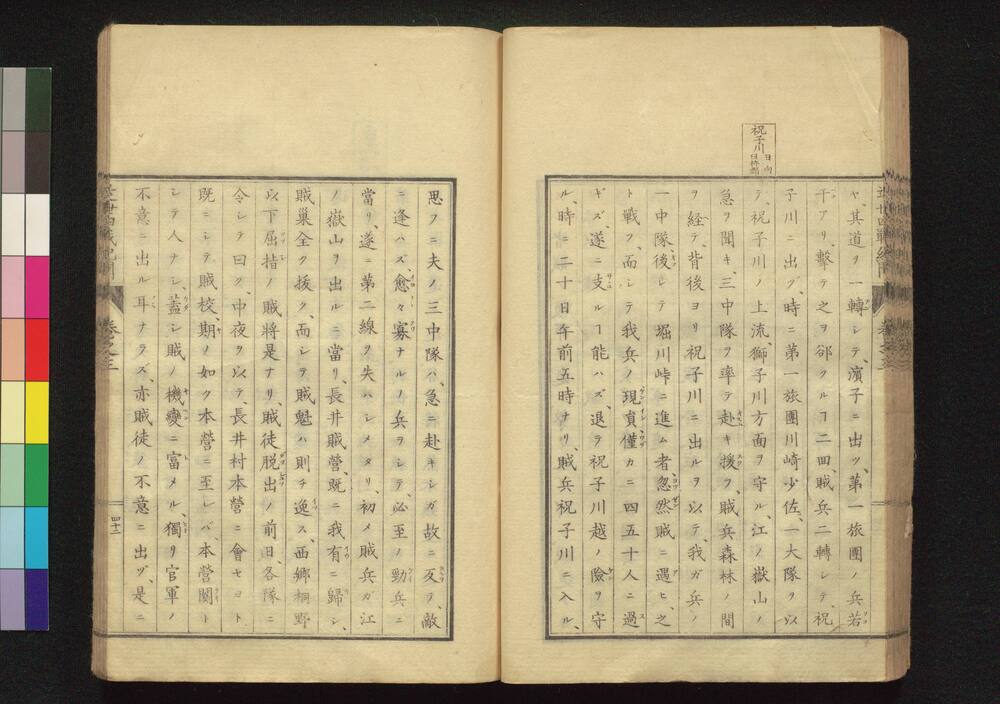 祝子川
日向
ヤ、其道ヲ一轉シテ、濱子ニ出ツ、第一旅團ノ兵若
干アリ、擊テ之ヲ郤クルコ二回、賊兵二轉シテ、祝
子川ニ出ヅ、時ニ第一旅團川崎少佐、一大隊ヲ以
テ、祝子川ノ上流、獅子川方面ヲ守ル、江ノ嶽山ノ
急ヲ聞キ、三中隊ヲ率テ赴キ援フ、賊兵森林ノ間
ヲ経テ、背後ヨリ祝子川ニ出ルヲ以テ、我ガ兵ノ
一中隊後レテ堀川峠ニ進ム者、忽然賊ニ遇ヒ、之
ト戰フ、而シテ我兵ノ現員僅カニ四五十人ニ過
ギズ、遂ニ支ルコ能ハズ、退テ祝子川越ノ險ヲ守
ル、時ニ二十日午前五時ナリ、賊兵祝子川ニ入ル、
思フニ夫ノ三中隊ハ、急ニ赴キシガ故ニ反テ、敵
ニ逢ハズ、愈々寡ナルノ兵ヲシテ、必至ノ勁兵ニ
當リ、遂ニ第二線ヲ失ハシメタリ、初メ賊兵ガ江
ノ嶽山ヲ出ルニ當リ、長井賊營、既ニ我有ニ歸シ、
賊巢全ク拔ク、而シテ賊魁ハ則チ逸ス、西郷桐野
以下屈指ノ賊將是ナリ、賊徒脱出ノ前日、各隊ニ
令シテ曰ク、中夜ヲ以テ、長井村本營ニ會セヨト
既ニシテ賊校、期ノ如ク本營ニ至レバ、本營闃ト
シテ人ナシ、蓋シ賊ノ機變ニ富メル、獨リ官軍ノ
不意ニ出ル耳ナラズ、亦賊徒ノ不意ニ出ヅ、是ニ
卷之三
四十三